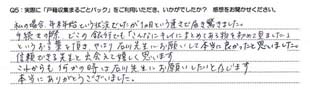 Q5：実際に「戸籍収集まるごとパック」をご利用いただき、いかがでしたか？ 感想をお聞かせください。
私の場合、年末年始という状況でしたが1ヶ月という速さで届き驚きました。
手続きの際、どこの銀行でも「こんなにキレイにまとめてある物を初めて見ました」
というお言葉を頂き、やはり石川先生にお願いして本当に良かったと思いました。
信頼できる先生と出会えて嬉しく思います。
これからも何かの時は石川先生にお願いしたいと存じます
本当にありがとうございました。